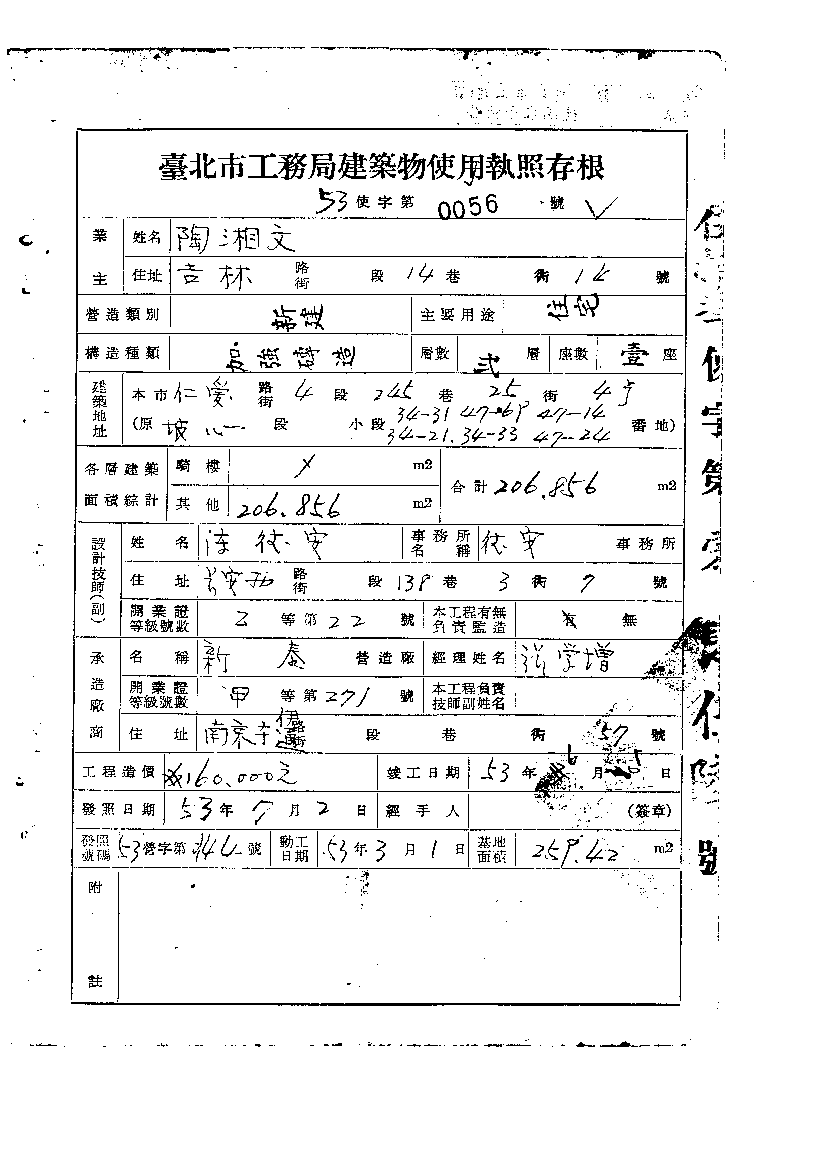 臺北市工務局建築物使用執照存根
53使字第 0056 號
業主 姓名 陶湘文
住址 吉林 路街 段 14 巷 衖 14 號
營造類別 新建 主要用途 住宅
構造種類 加強磚造 層數 弍 層 座數 壹 座
建築地址 本市 仁愛 路街 4 段 245 巷 25 衖 4号
(原 坡心 段 小段 34-31 47-69 47-14 番地)
34-21. 34-33 47-24
各層建築面積綜計 騎樓 m2 合計 206.856 m2
其他 206.856 m2
設計技師(副) 姓名 事務所名稱 事務所
住址 路街 段 138 巷 3 衖 7 號
開業證等級號數 乙 等第 22 號 本工程有無負責監造 有 無
承造廠商 名稱 新泰 營造廠 經理姓名 學增
開業證等級號數 甲 等第 271 號 本工程負責技師副姓名
住址 南京 路街 段 巷 衖 57 號
工程造價 160,000元 竣工日期 53年 6月 日
發照日期 53年 7月 2日 經手人 (簽章)
發照號碼 53營字第 號 動工日期 53年 3月 1日 基地面積 259.42 m2
附註